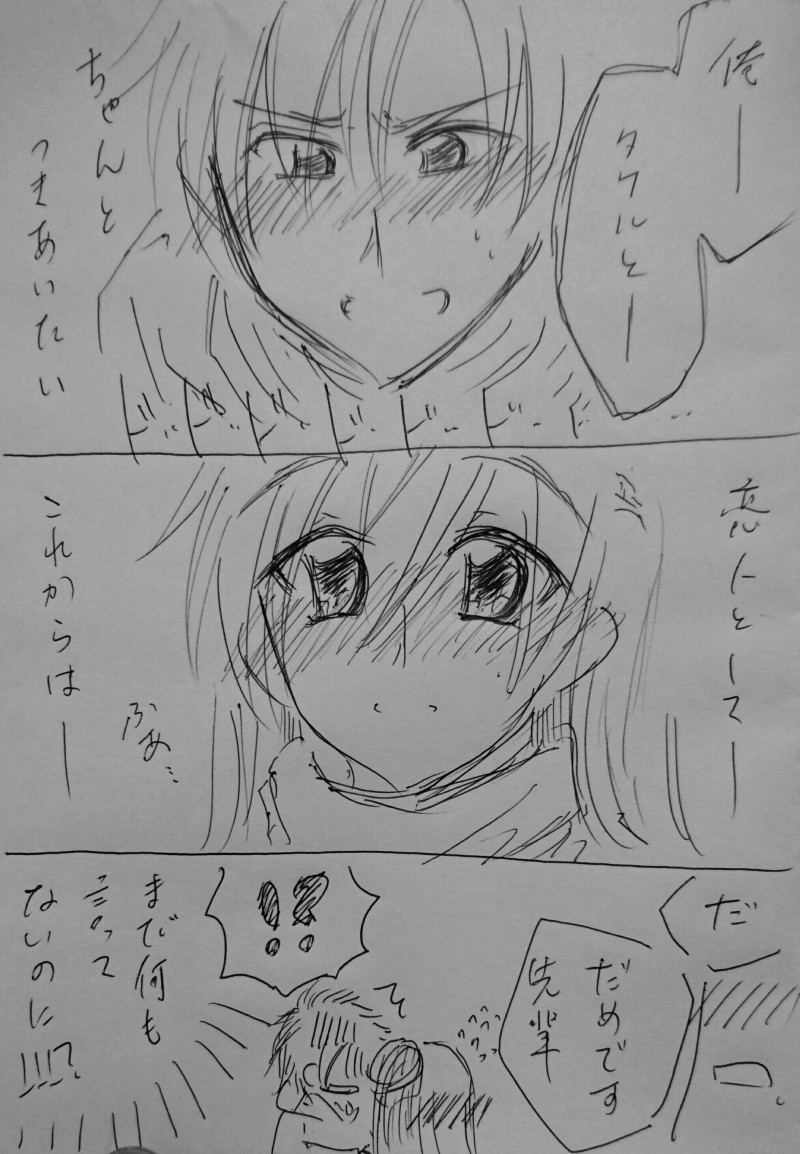 俺ー
タケルとー
ちゃんと
つきあいたい
ド ド ド ド ド ド ド
恋人としてー
これからはー
ふあ…
だ
だめです
先輩
!?
そ
まだ何も
言って
ないのに!!!?